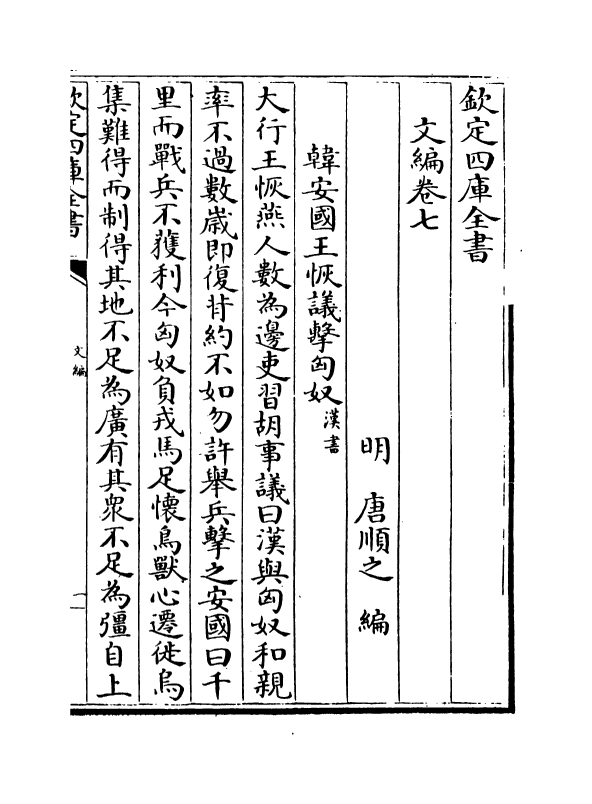 欽定四庫全書
文編卷七
明 唐順之 編
韓安國王恢議擊匈奴漢書
大行王恢燕人數為邊吏習胡事議曰漢與匈奴和親
率不過數嵗即復背約不如勿許舉兵擊之安國曰千
里而戰兵不獲利今匈奴負戎馬足懷鳥獸心遷徙鳥
集難得而制得其地不足為廣有其衆不足為彊自上
欽定四庫全書
文編
一